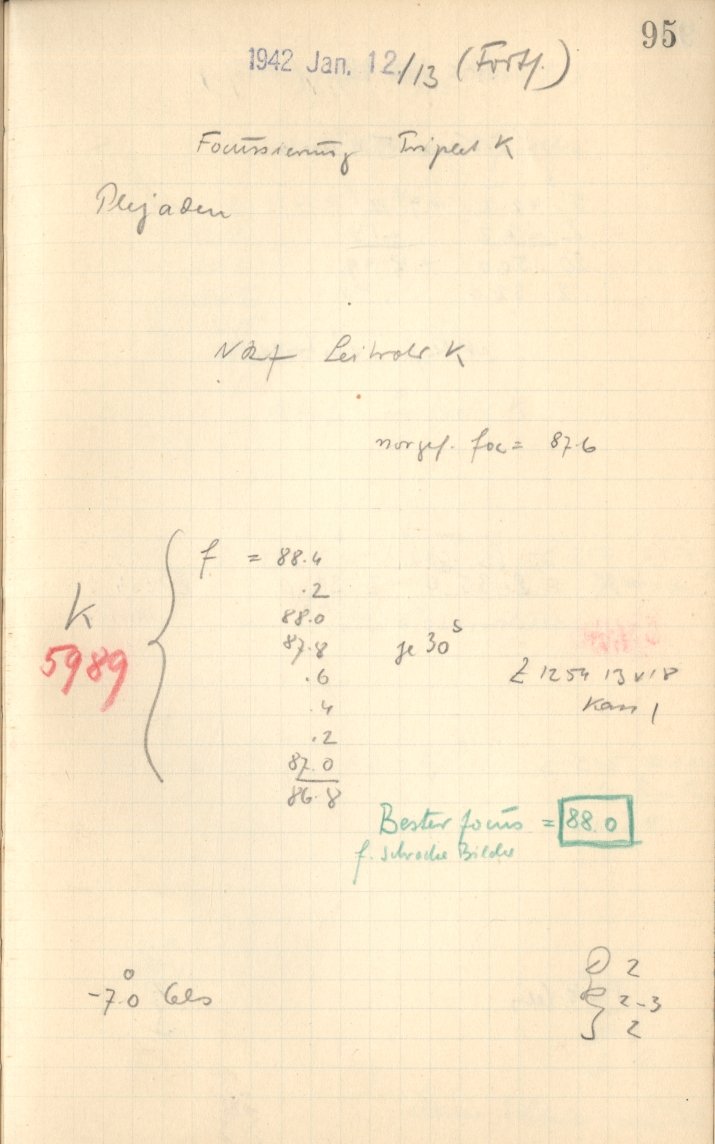 95
1942 Jan. 12/13 (Forts.)
Focussierung Triplet K
Plejaden
Leitrohr K
vorgef. foc = 87.6
f = 88.4
.2
88.0
87.8
.6
.4
.2
87.0
86.8
K
5989
je 30s
Z 1254 13 v 18
Kass 1
Bester focus = 88.0
f. schwache Bilder
-7.0° Cels
2
2-3
2